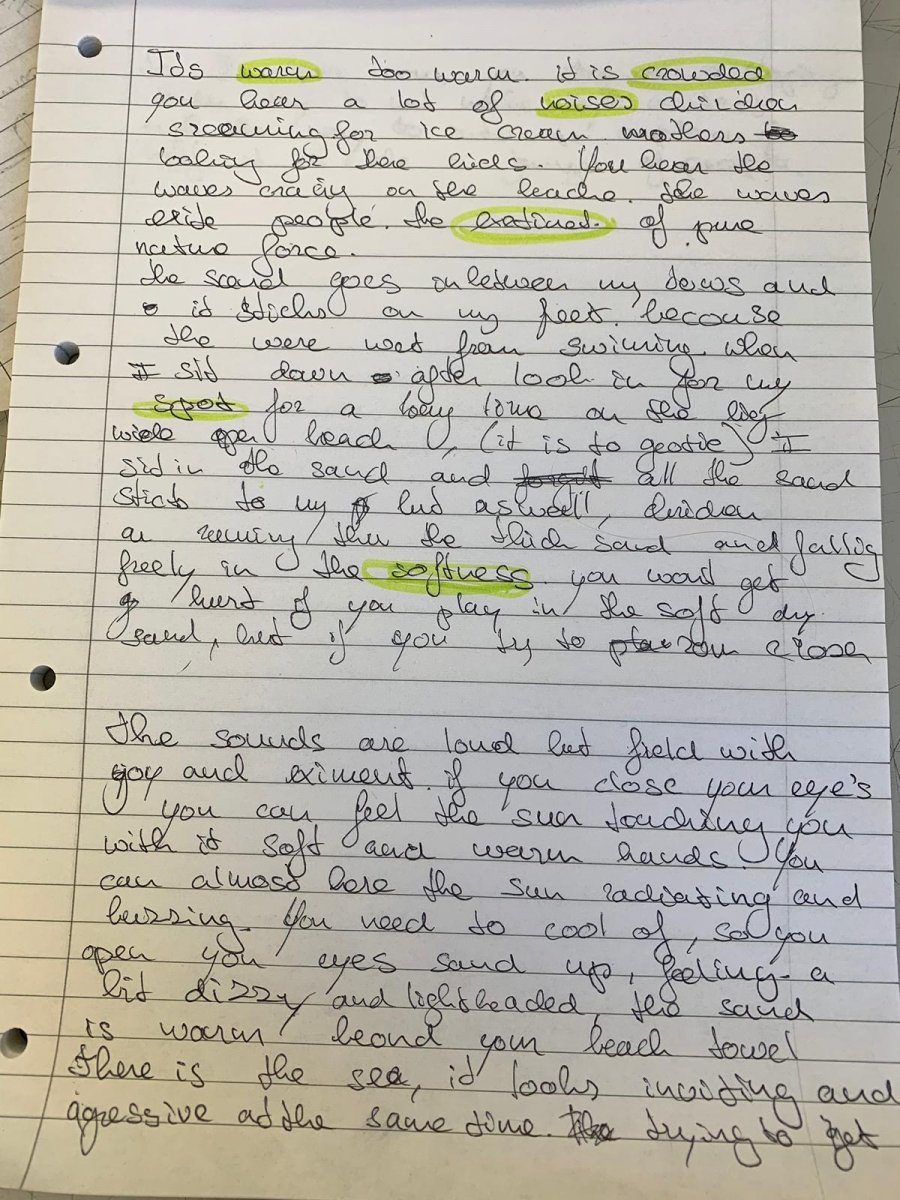 Its warm too warm. it is crowded
you hear a lot of noises children
screaming for ice cream mothers
looking for there kids. You hear the
waves on the beache. the waves
exite people. the of pure
nature force.
the sand goes inbetween my tows and
it sticks on my feet. becouse
the were wet from swiming. when
I sit down after look in for my
spot for a long time on the big
wide open beach, (it is to gootie) I
sit in the sand and all the sand
sticts to my but aswell, children
a running thru the thick sand and fallig
freely in the softness. you wont get
hurt if you play in the soft dry
sand, but if you try to run closer
the sounds are loud but field with
joy and eximent. if you close your eye's
you can feel the sun touching you
with it soft and warm hands. You
can almost here the sun radiating and
buzzing. You need to cool of, so you
open you eyes sand up, feeling a
bit dizzy and lightheaded, the sand
is warm beond your beach towel
there is the sea, it looks inviting and
agressive at the same time. trying to get